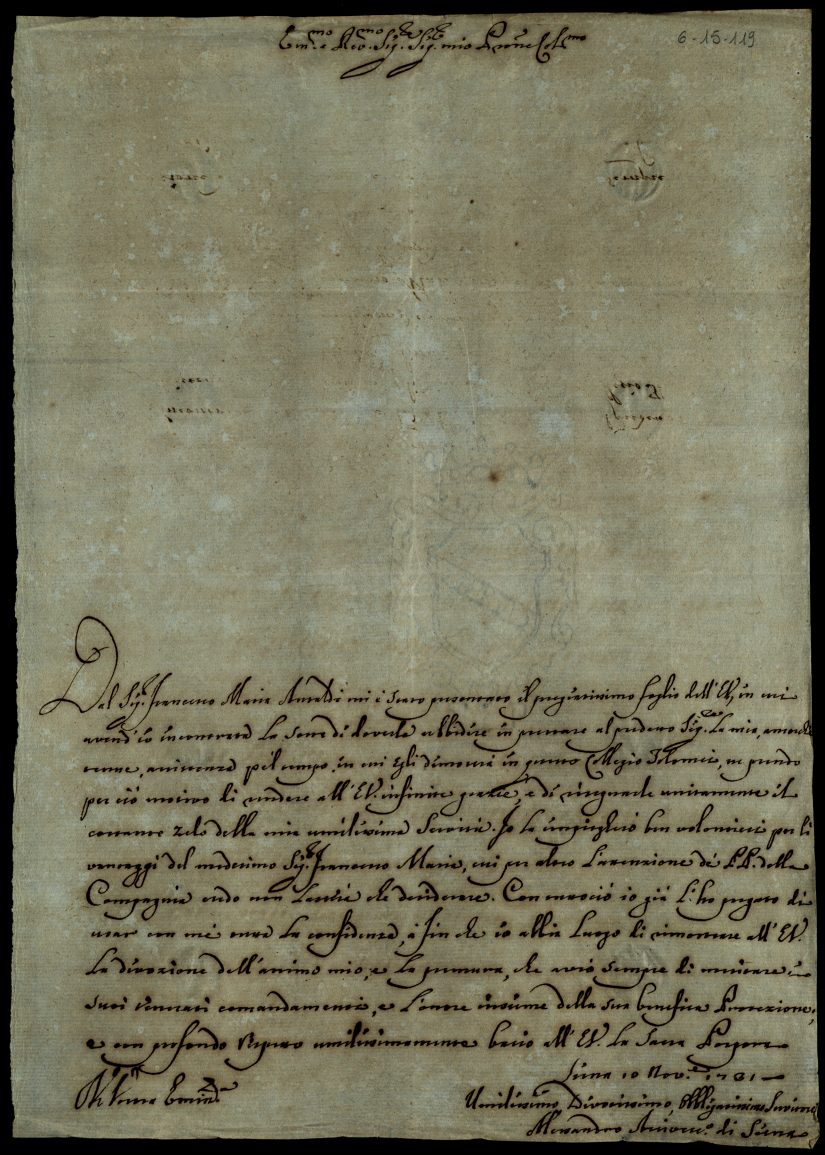 Em.mo e Rev.mo Sig.re Sig.re mio P'rone Col.mo
6-15-119
Dal Sig.r Francesco Maria Ansaldi mi è stato presentato il pregiatissimo foglio dell'E.V., in cui
avend'io incontrata la sorte di doverla ubbidire in prestare al predetto Sig.re la mia, amorche
tenue, assistenza pel tempo, in cui egli dimorerà in questo Collegio Tolomei, ne prendo
per ciò motivo di rendere all'E.V. infinite grazie, e di rassegnarle unitamente il
costante zelo della mia umilissima Servitù. Io la impiegherò ben volentieri per li
vantaggi del medesimo Sig.r Francesco Maria, cui per altro l'attenzione de' PP. della
Compagnia credo non lascerà che desiderare. Con tuttociò io già l'ho pregato di
usar con me tutta la confidenza, a fin che io abbia luogo di rimostrare all'E.V.
la divozione dell'animo mio, e la premura, che avrò sempre di meritare i
suoi venerati comandamenti, e l'onore insieme della sua benefica Protezione;
e con profondo rispetto umilissimamente bacio all'E.V. la Sacra Porpora
Siena 10 Nov.e 1731
Di Vostra Emin.za
Umilissimo, Divotissimo, Obbligatissimo Servitore
Alessandro Arcivesc.o di Siena